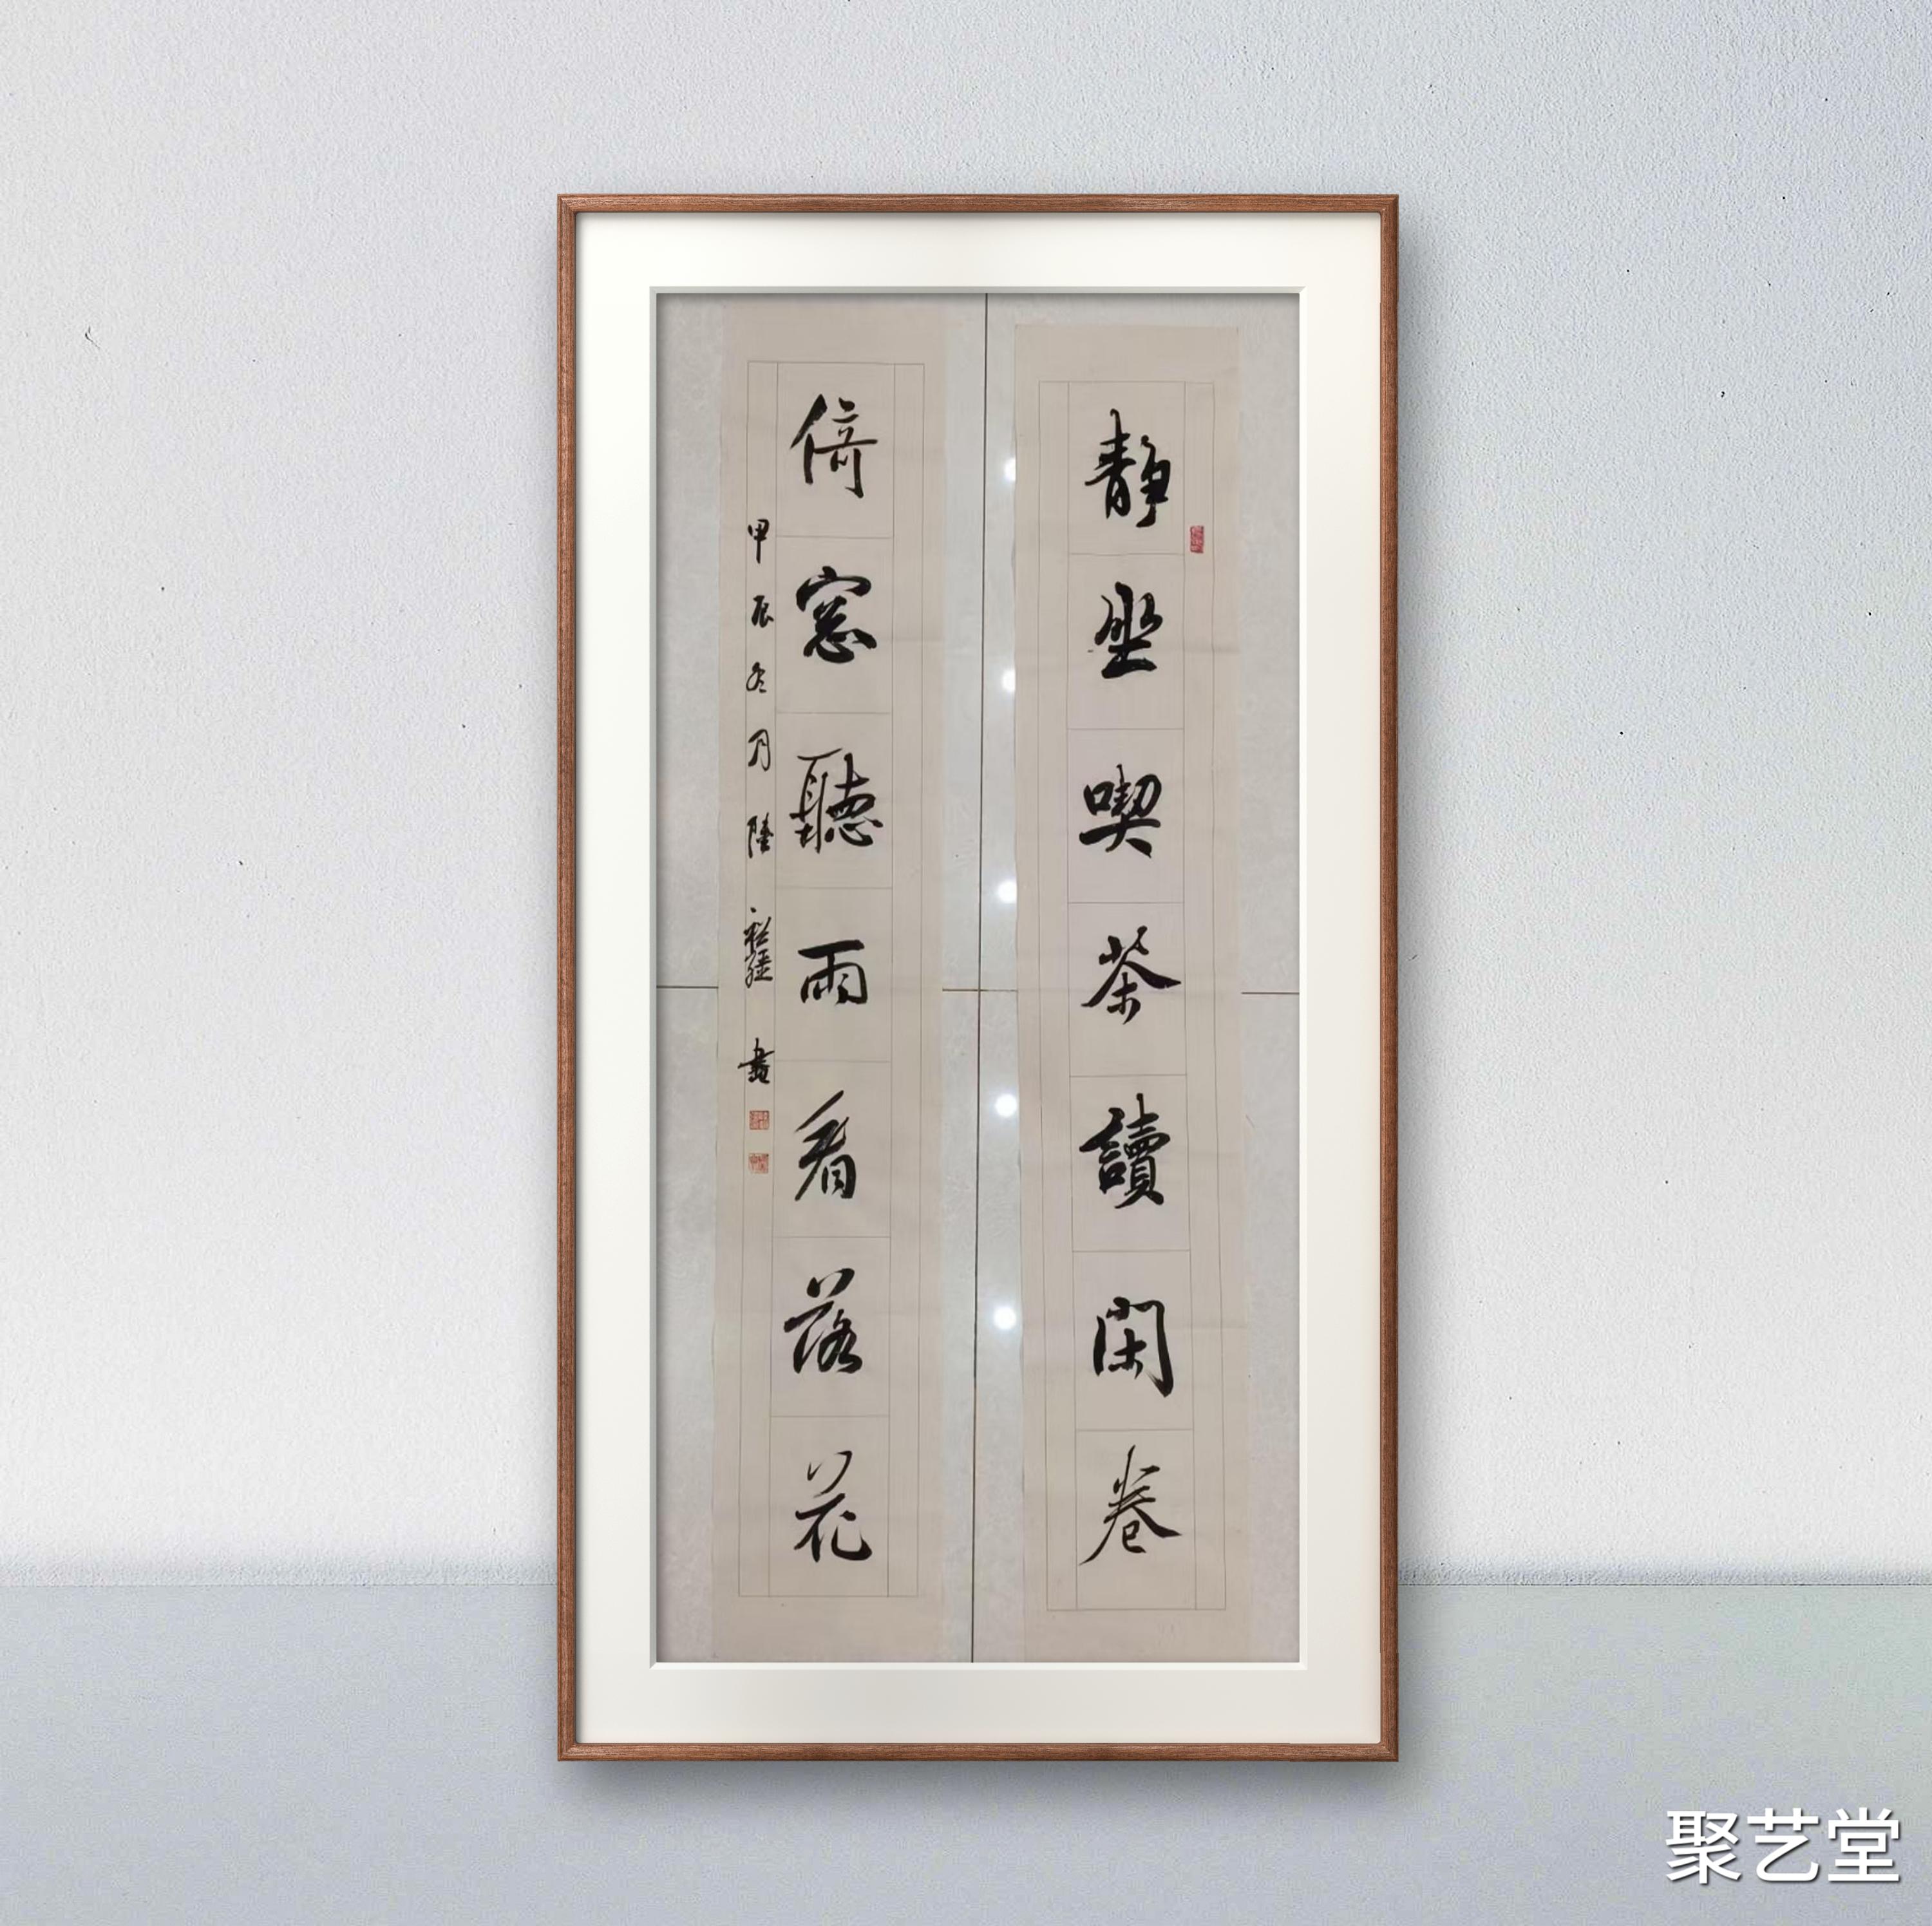 靜坐喫茶讀閑卷
倚窓聽雨看落花
甲辰冬月陸
書
聚艺堂